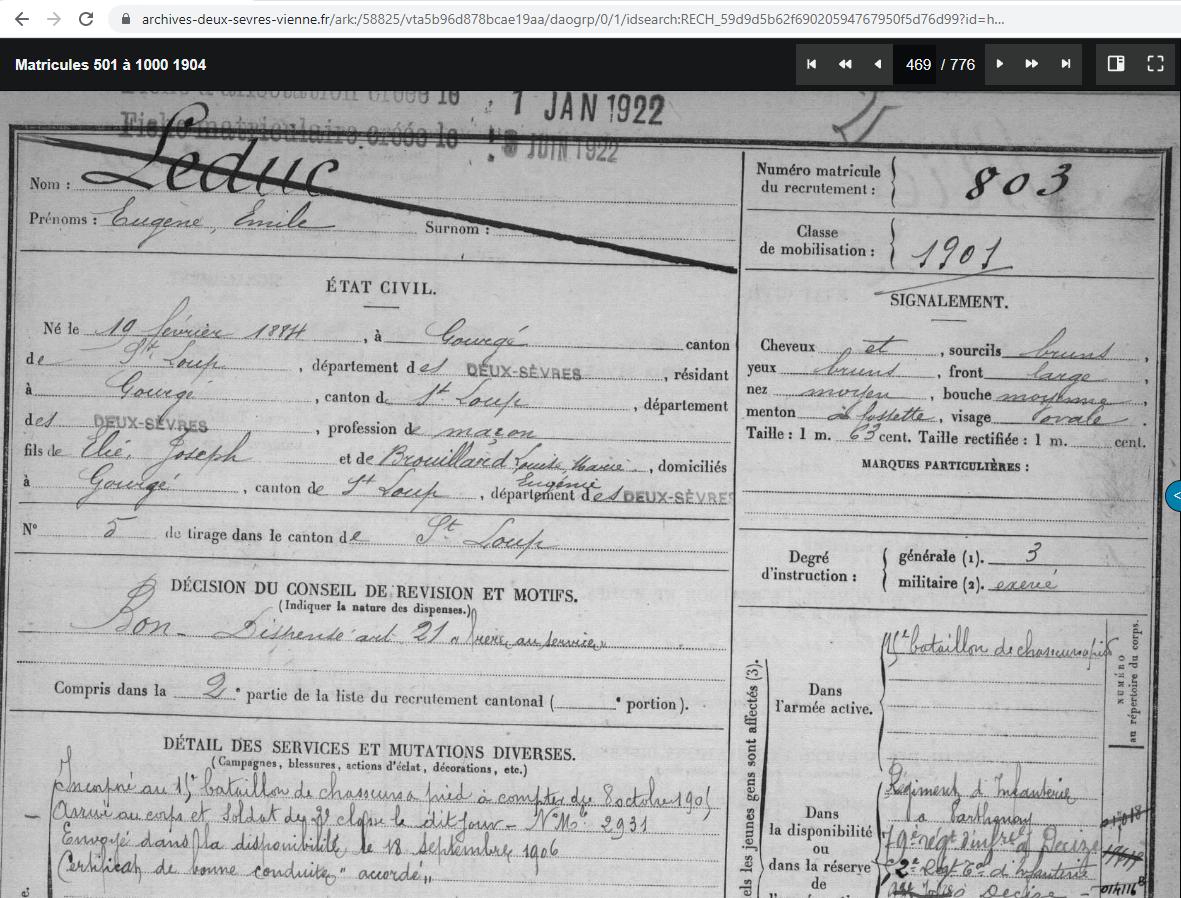 archives-deux-sevres-vienne.fr/ark:/58825/vta5b96d878bcae19aa/daogrp/0/1/idsearch:RECH_59d9d5b62f69020594767950f5d76d99?id=h...
Matricules 501 à 1000 1904
469 / 776
Fiche d'affectation créée le 1 JAN 1922
Fiche matriculaire créée le JUIN 1922
Nom : Leduc
Prénoms : Eugène, Emile Surnom :
Numéro matricule
du recrutement : 803
Classe
de mobilisation : 1901
ÉTAT CIVIL.
Né le 10 février 1884, à Gourgé canton
de St Loup, département des DEUX-SÈVRES, résidant
à Gourgé, canton de St Loup, département
des DEUX-SÈVRES, profession de maçon
fils de Elie, Joseph et de Brouillard Louise, Marie Eugénie, domiciliés
à Gourgé, canton de St Loup, département des DEUX-SÈVRES
N° 5 de tirage dans le canton de St Loup
SIGNALEMENT.
Cheveux et, sourcils bruns,
yeux bruns, front large
nez moyen, bouche moyenne,
menton à fossette, visage ovale.
Taille : 1 m. 63 cent. Taille rectifiée : 1 m. cent.
MARQUES PARTICULIÈRES :
Degré
d'instruction :
générale (1). 3
militaire (2). exercé
DÉCISION DU CONSEIL DE REVISION ET MOTIFS.
(Indiquer la nature des dispenses.)
Bon - Dispensé art 21 "frère au service"
Compris dans la 2e partie de la liste du recrutement cantonal ( e portion).
DÉTAIL DES SERVICES ET MUTATIONS DIVERSES.
(Campagnes, blessures, actions d'éclat, décorations, etc.)
Incorporé au 15e bataillon de chasseurs à pied à compter du 8 octobre 1905
Arrivé au corps et soldat de 2e classe le dit jour - N° Mle 2931
Envoyé dans la disponibilité le 18 septembre 1906
Certificat de bonne conduite "accordé"
els les jeunes gens sont affectés (3).
NUMÉRO
au répertoire du corps.
Dans
l'armée active.
15e bataillon de chasseurs à pied
Dans
la disponibilité
ou
dans la réserve
de
Régiment d'Infanterie
à Parthenay
79e régt d'infrie à Decize
2e Regt Cal d'Infanterie
Decize